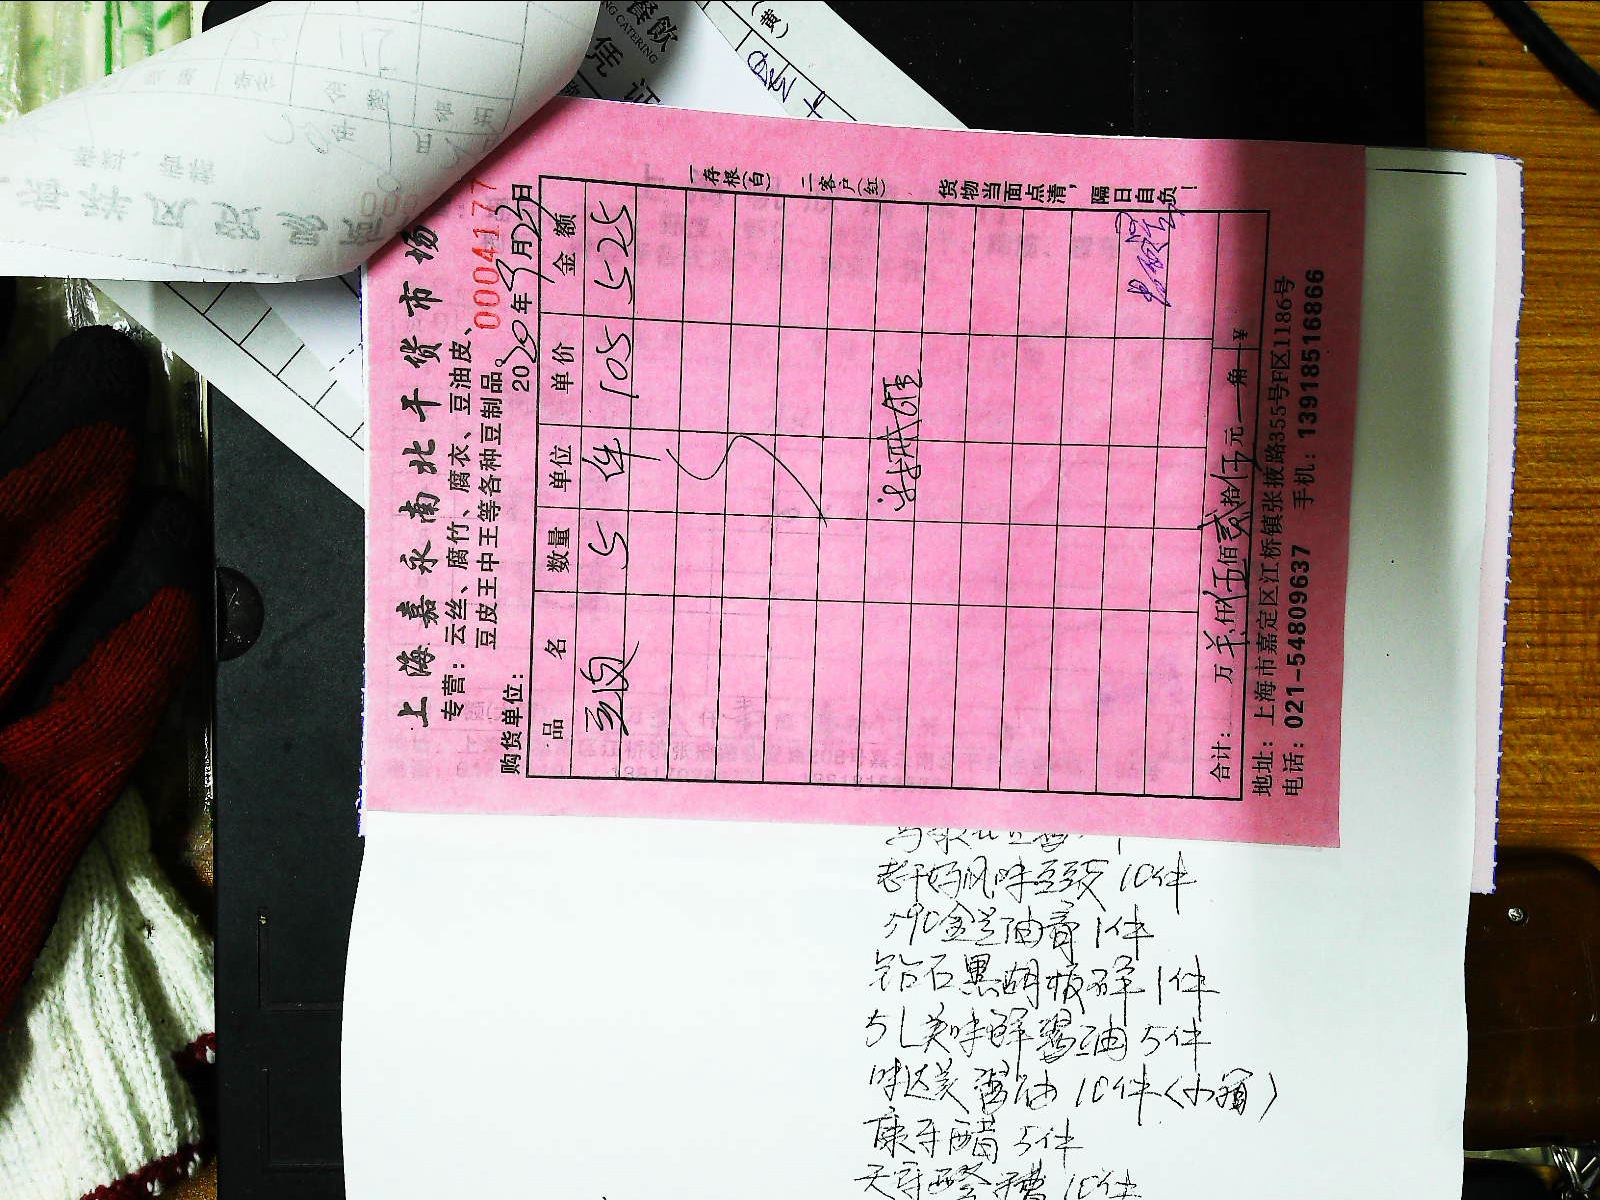 上海嘉永南北干货市场
专营：云丝、腐竹、腐衣、豆油皮、
豆皮王中王等各种豆制品。
0004177
购货单位：
2020年3月25日
品名 数量 单位 单价 金额
豆皮 5 件 105 525
合计： 万 仟伍佰贰拾伍元 角 ¥
地址：上海市嘉定区江桥镇张掖路355号F区1186号
电话：021-54809637 手机：13918516866
一存根(白) 二客户(红) 货物当面点清，隔日自负！
餐飲
NG CATERING
凭证
(黄)
老干妈风味豆豉 10件
590金兰油膏 1件
钻石黑胡椒碎 1件
5L美味鲜酱油 5件
味达美酱油 10件(小箱)
康乐醋 5件
10件